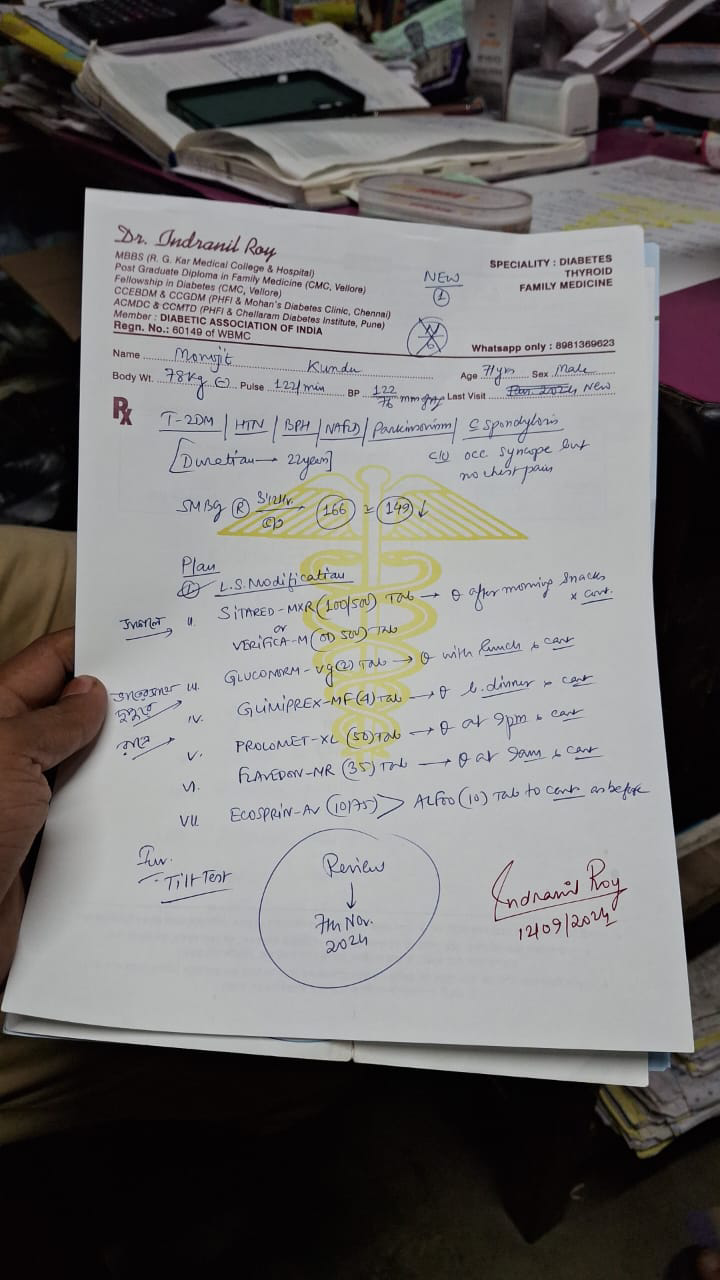 Dr. Indranil Roy
MBBS (R. G. Kar Medical College & Hospital)
Post Graduate Diploma in Family Medicine (CMC, Vellore)
Fellowship in Diabetes (CMC, Vellore)
CCEBDM & CCGDM (PHFI & Mohan's Diabetes Clinic, Chennai)
ACMDC & CCMTD (PHFI & Chellaram Diabetes Institute, Pune)
Member : DIABETIC ASSOCIATION OF INDIA
Regn. No.: 60149 of WBMC
NEW
1
SPECIALITY : DIABETES
THYROID
FAMILY MEDICINE
Whatsapp only : 8981369623
Name Kundu Age 71yrs Sex Male
Body Wt. 78kg Pulse 122/min BP 122/76 mm Hg Last Visit New
Rx
T-2DM / HTN / BPH / NAFLD / Parkinsonism / C Spondylosis
[Duration → 22years]
c/o occ. syncope but
no chest pain
SMBG R 166 149 ↓
Plan
I. L.S. Modification
II. SITARED-MXR (100/500) Tab → after morning snacks x cont.
or
VERIFICA-M (OD 500) Tab
III. GLUCONORM-VG(2) Tab → with lunch x cont
দুপুরে
IV. GLIMIPREX-MF(4) Tab → b. dinner x cont
রাতে
V. PROLOMET-XL (50) Tab → at 9pm x cont
VI. FLAVEDON-MR (35) Tab → at 9am x cont
VII. ECOSPRIN-AV (10/75) > ALFOO (10) Tab to cont as before
Inv.
- Tilt Test
Review
↓
7th Nov.
2024
Indranil Roy
12/09/2024